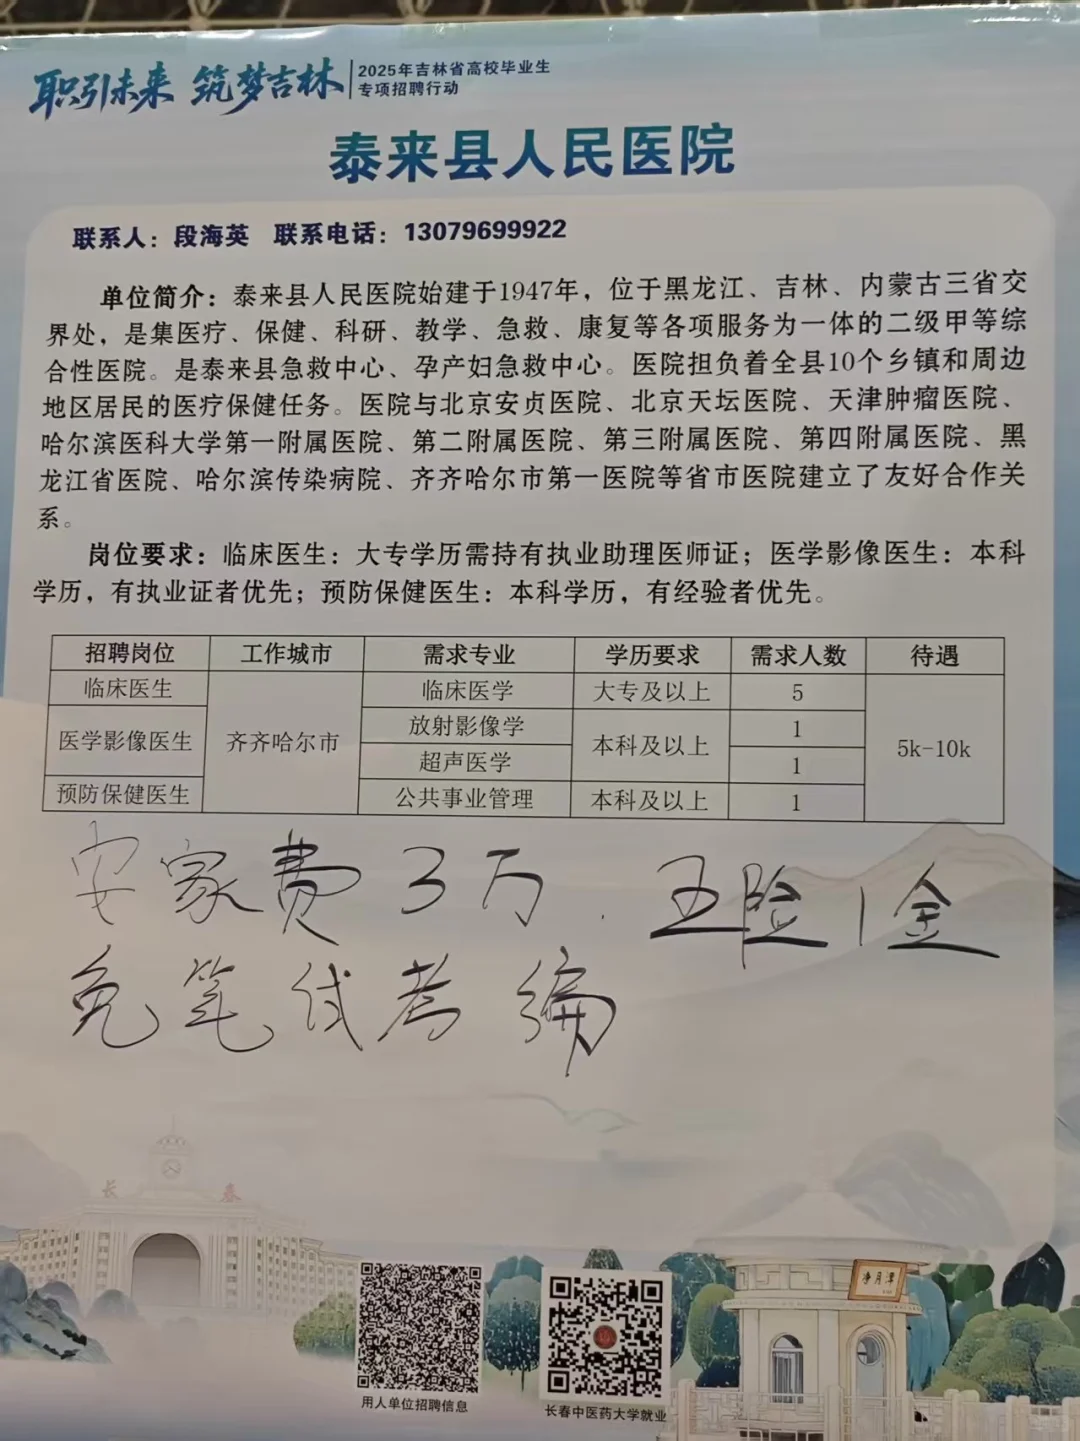 职引未来 筑梦吉林
2025年吉林省高校毕业生
专项招聘行动
泰来县人民医院
联系人：段海英 联系电话：13079699922
单位简介：泰来县人民医院始建于1947年，位于黑龙江、吉林、内蒙古三省交
界处，是集医疗、保健、科研、教学、急救、康复等各项服务为一体的二级甲等综
合性医院。是泰来县急救中心、孕产妇急救中心。医院担负着全县10个乡镇和周边
地区居民的医疗保健任务。医院与北京安贞医院、北京天坛医院、天津肿瘤医院、
哈尔滨医科大学第一附属医院、第二附属医院、第三附属医院、第四附属医院、黑
龙江省医院、哈尔滨传染病院、齐齐哈尔市第一医院等省市医院建立了友好合作关
系。
岗位要求：临床医生：大专学历需持有执业助理医师证；医学影像医生：本科
学历，有执业证者优先；预防保健医生：本科学历，有经验者优先。
招聘岗位 工作城市 需求专业 学历要求 需求人数 待遇
临床医生 临床医学 大专及以上 5
医学影像医生 齐齐哈尔市 放射影像学 本科及以上 1 5k-10k
超声医学 1
预防保健医生 公共事业管理 本科及以上 1
安家费3万. 五险1金
免笔试考编
长春
净月潭
用人单位招聘信息
长春中医药大学就业